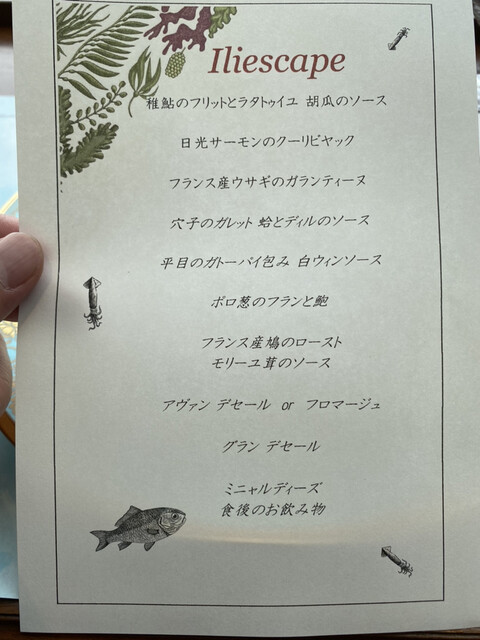 Iliescape
稚鮎のフリットとラタトゥイユ 胡瓜のソース
日光サーモンのクーリビヤック
フランス産ウサギのガランティーヌ
穴子のガレット 蛤とディルのソース
平目のガトーパイ包み 白ワィンソース
ポロ葱のフランと鮑
フランス産鳩のロースト
モリーユ茸のソース
アヴァン デセール or フロマージュ
グラン デセール
ミニャルディーズ
食後のお飲み物